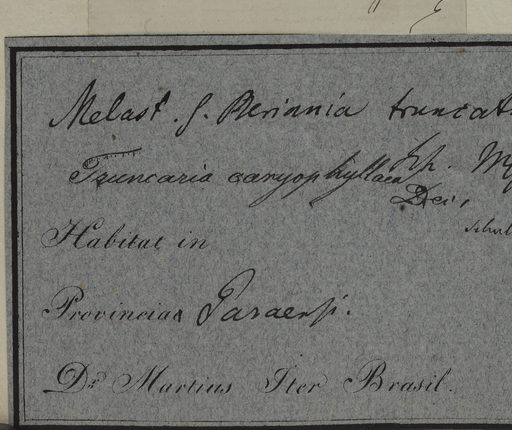 Melast. g. Meriania truncat
Truncaria caryophyllacea
Habitat in
Provincia Paraensi.
Dr. Martius Iter Brasil.